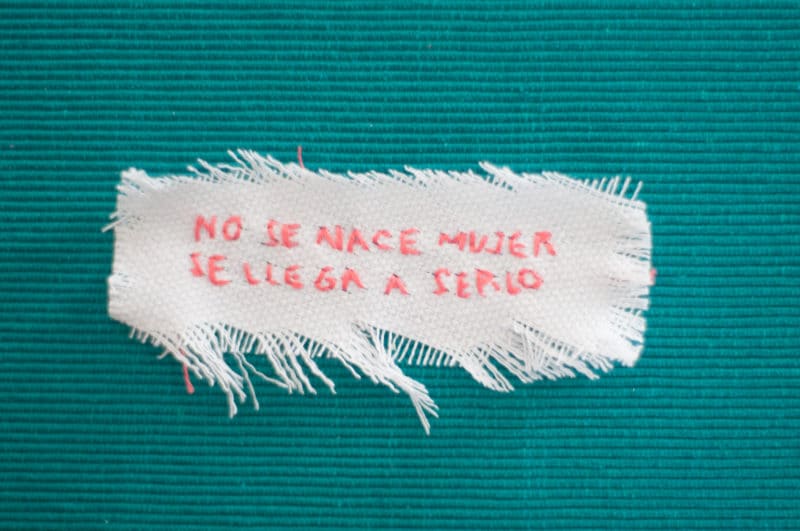 NO SE NACE MUJER
SE LLEGA A SERLO